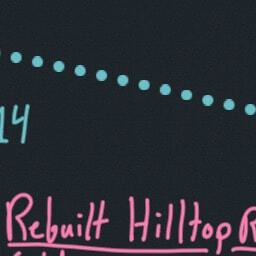 14
Rebuilt Hilltop R